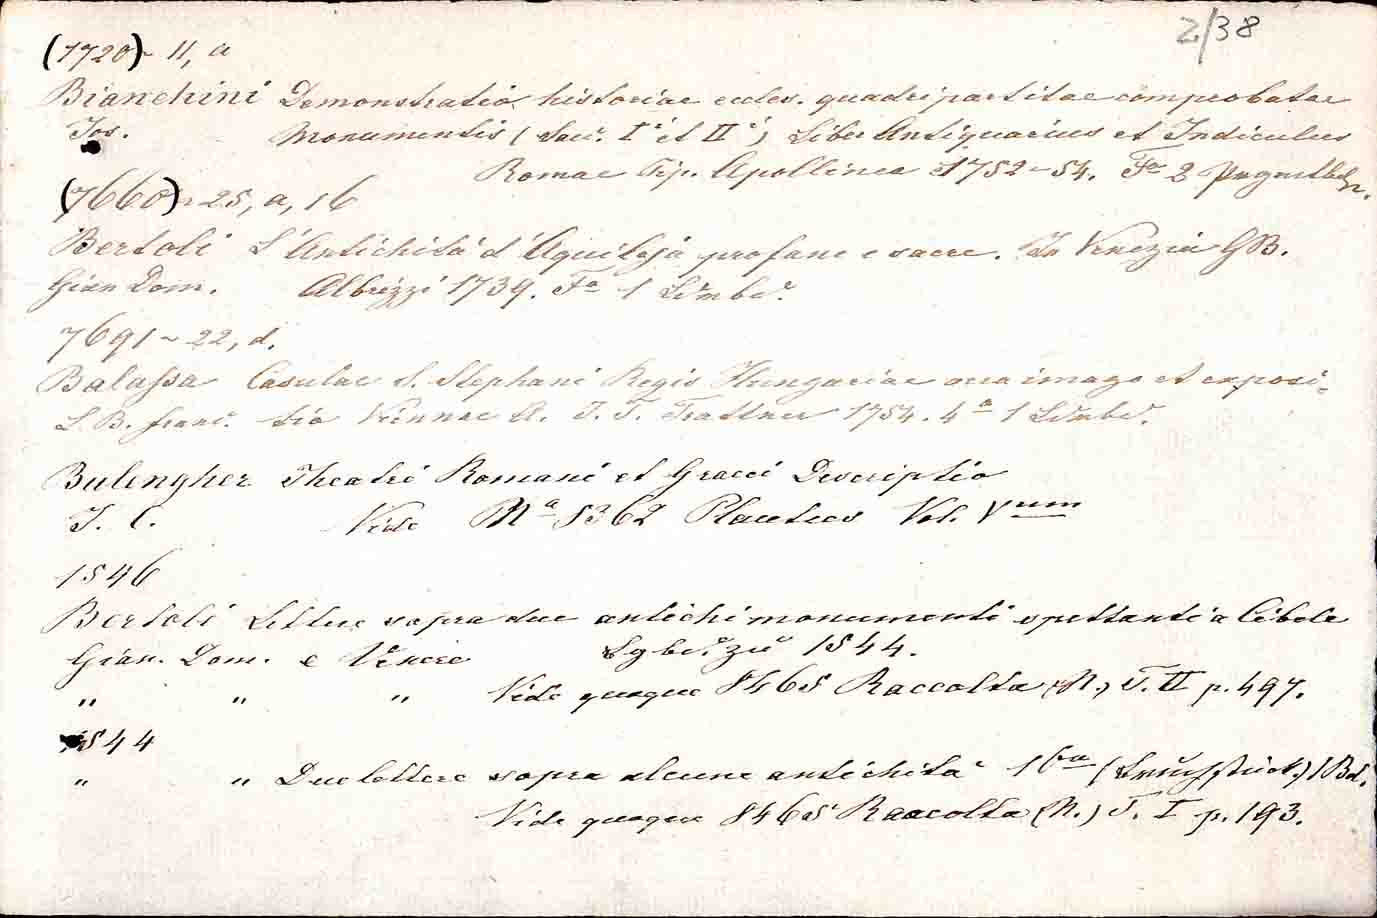 2/38
(1720) ~ 11, a
Bianchini Demonstratio historiae eccles. quadripartitae comprobatae
Jos. Monumentis (Saec. I et II) Liber Antiquarius et Indiculus
Romae Tip. Apollinea 1752-54. Fo 2
(7660) ~ 25, a, 16
Bertoli L'Antichità d'Aquileja profane e sacre. In Venezia GB.
Gian Dom. Albrizzi 1739. Fo 1
7691 ~ 22, d.
Balassa Casulae S. Stephani Regis Hungariae imago et exposi-
L. B. franc. tio Viennae A. J. T. Trattner 1754. 4a 1
Bulengher Theatri Romani et Graeci Descriptio
J. C. Vide No 8362 Plautus Vol. Vum
1546
Bertoli Lettere sopra due antichi monumenti spettanti a Cibele
Gian. Dom. e Venere 1544.
" " " Vide quoque 8465 Raccolta (N.) T. II p. 497.
1544
" " Due lettere sopra alcune antichità 16a
Vide quoque 8465 Raccolta (N.) T. I p. 193.